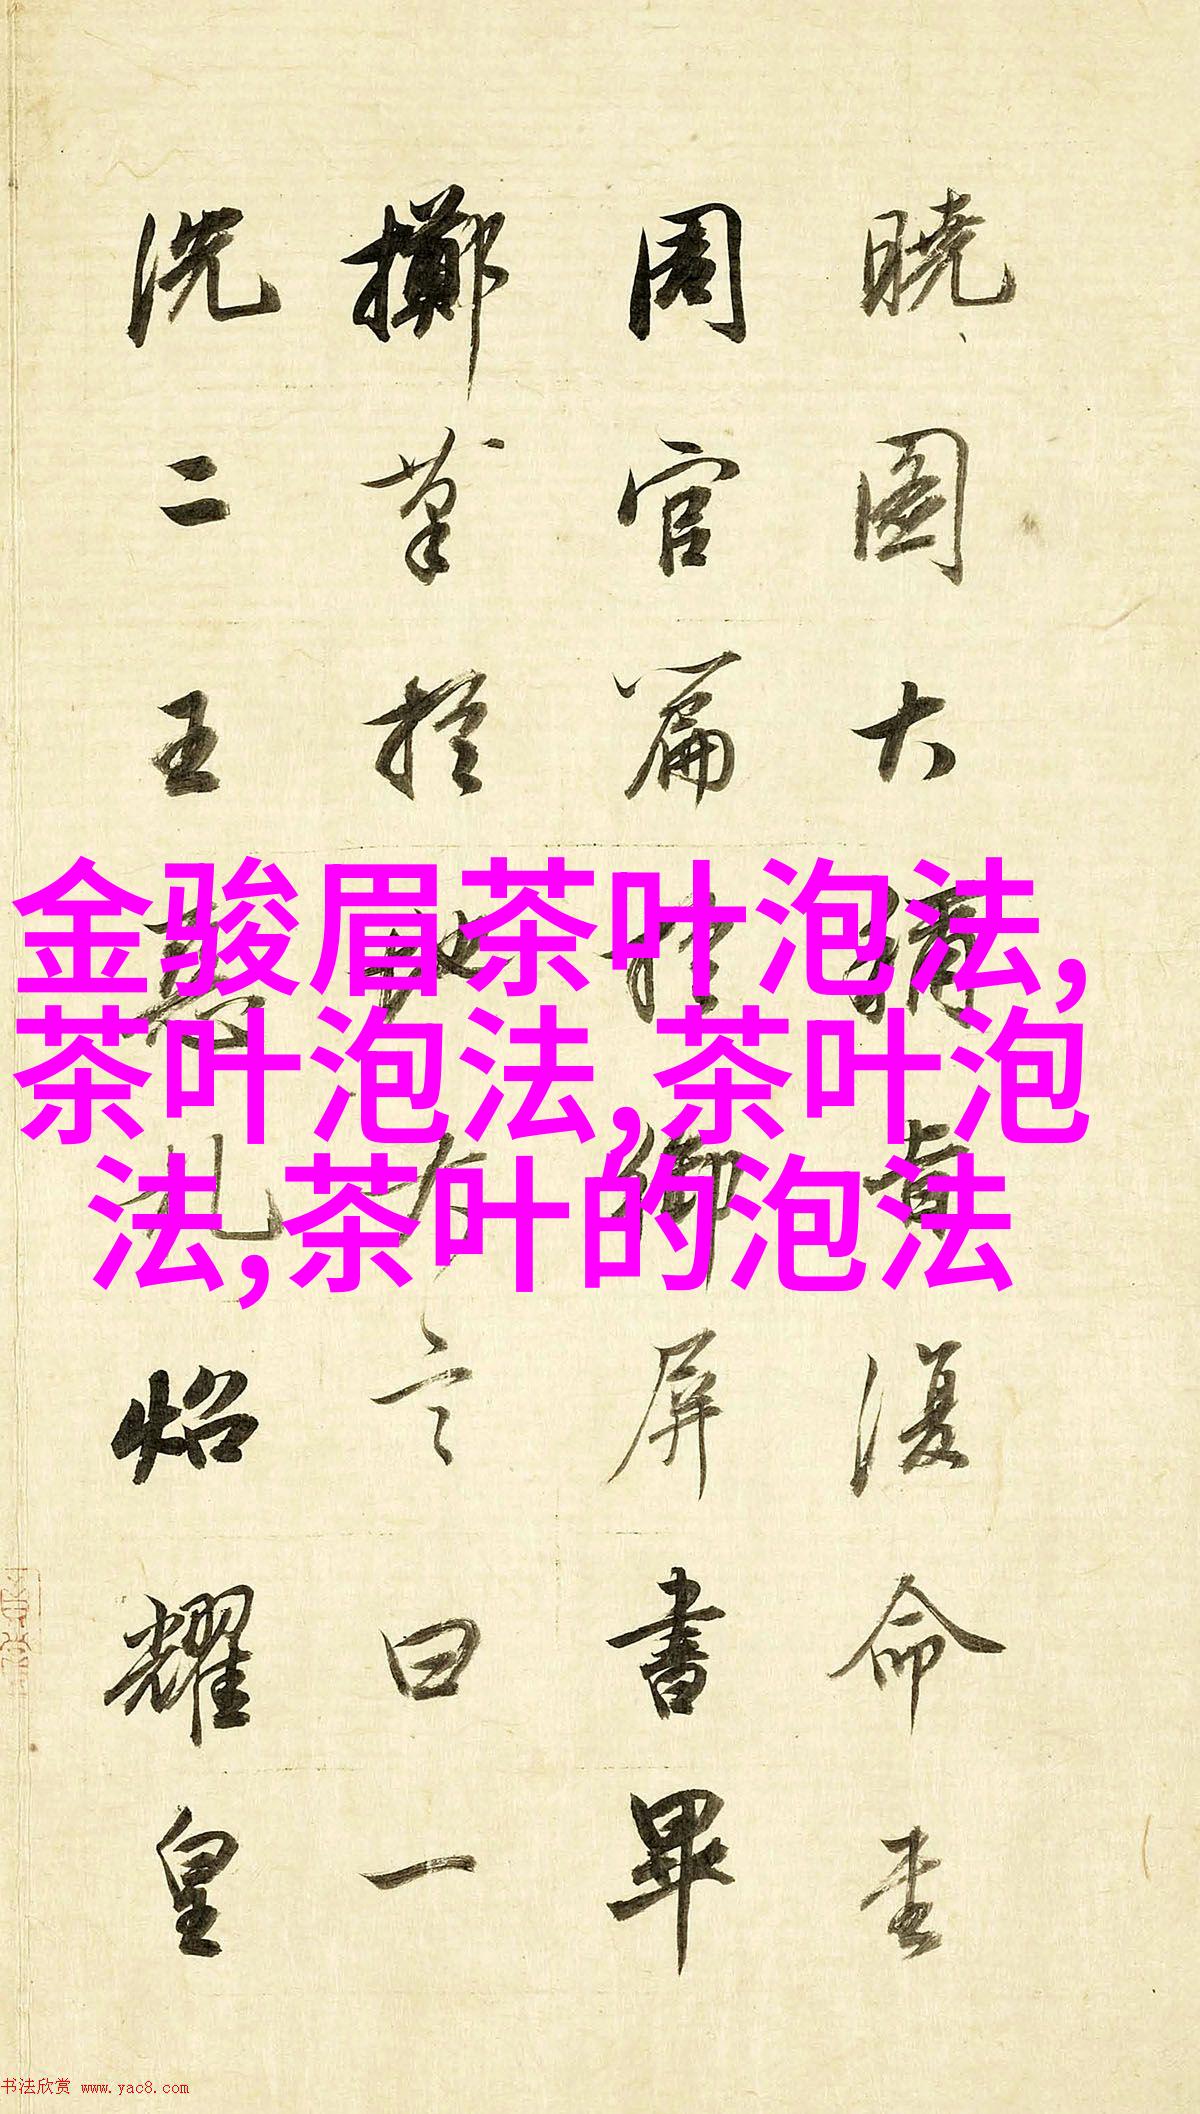 晓图大
復命重
周官篇
屏書畢
擲筆於
言曰一
洗二王
焰耀皇
金骏眉茶叶泡法,
茶叶泡法,茶叶泡
法,茶叶的泡法
书法欣赏 www.yac8.com